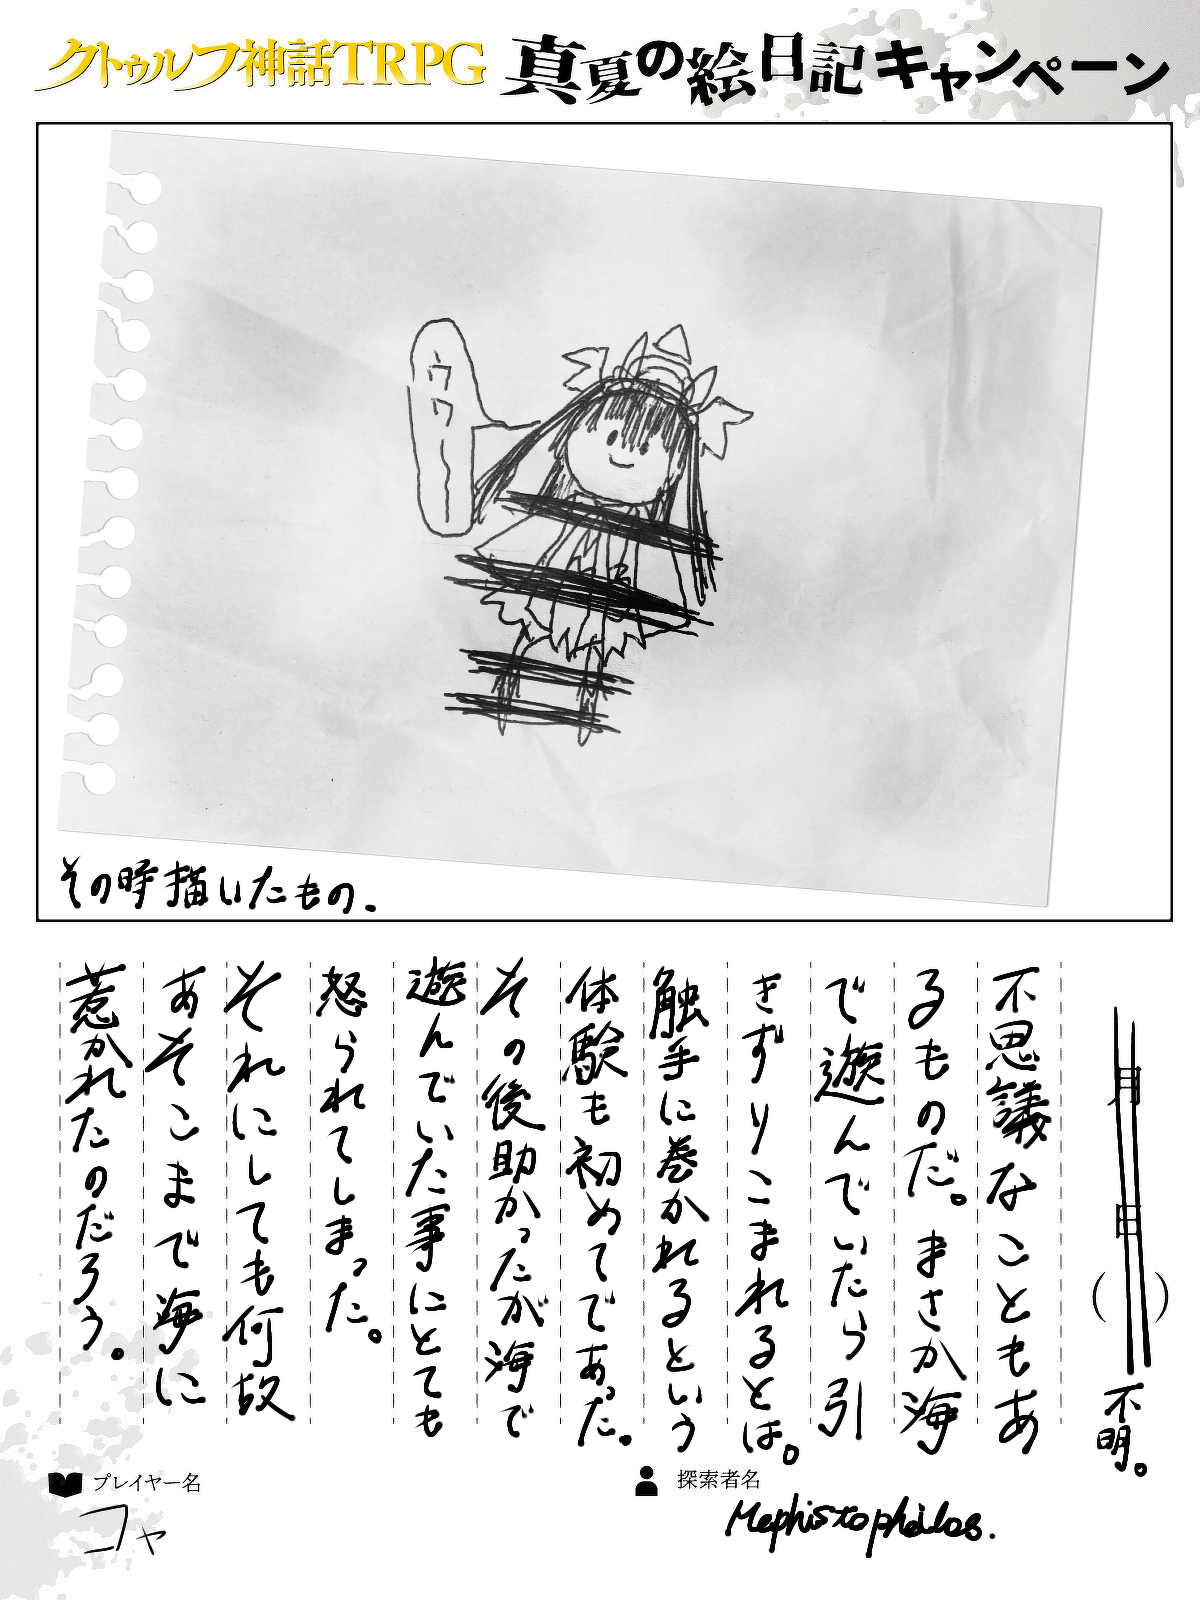 クトゥルフ神話TRPG 真夏の絵日記キャンペーン
ウワー
その時描いたもの.
月 日 ( ) 不明。
不思議なこともあ
るものだ。まさか海
で遊んでいたら引
きずりこまれるとは。
触手に巻かれるという
体験も初めてであった。
その後助かったが海で
遊んでいた事にとても
怒られてしまった。
それにしても何故
あそこまで海に
惹かれたのだろう。
プレイヤー名
コャ
探索者名
Mephistopheles.